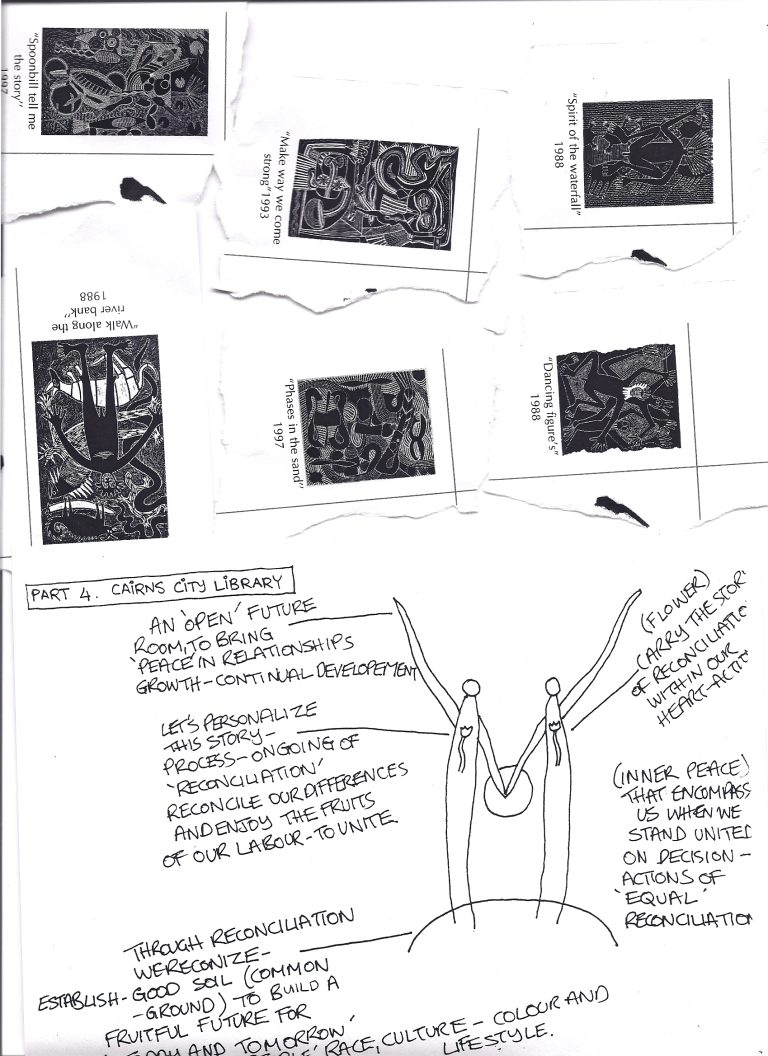 "Spoonbill tell me
the story"
1997
"Make way we come
strong"1993
"Spirit of the waterfall"
1988
"Walk along the
river bank"
1988
"Phases in the sand"
1997
"Dancing figure's"
1988
PART 4. CAIRNS CITY LIBRARY
AN 'OPEN' FUTURE
ROOM, TO BRING
'PEACE' IN RELATIONSHIPS
GROWTH - CONTINUAL DEVELOPEMENT
(FLOWER)
CARRY THE STOR
OF RECONCILIATIO
WITHIN OUR
HEART-ACTI
LET'S PERSONALIZE
THIS STORY -
PROCESS - ONGOING OF
'RECONCILIATION'
RECONCILE OUR DIFFERENCES
AND ENJOY THE FRUITS
OF OUR LABOUR - TO UNITE.
(INNER PEACE)
THAT ENCOMPASS
US WHEN WE
STAND UNITED
ON DECISION -
ACTIONS OF
'EQUAL'
RECONCILIATION
THROUGH RECONCILIATION
WE RECONIZE -
ESTABLISH - GOOD SOIL (COMMON
- GROUND) TO BUILD A
FRUITFUL FUTURE FOR
AND TOMORROW'
RACE, CULTURE - COLOUR AND
LIFESTYLE.